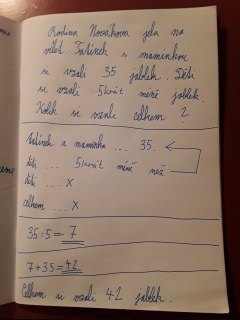 Rodina Novákova jela na
výlet. Tatínek s maminkou
si vzali 35 jablek. Děti
si vzali 5krát méně jablek.
Kolik si vzali celkem?
tatínek a maminka ... 35.
děti ... 5krát méně než
děti ... x
celkem ... x
35:5=7
7+35=42
Celkem si vzali 42 jablek.